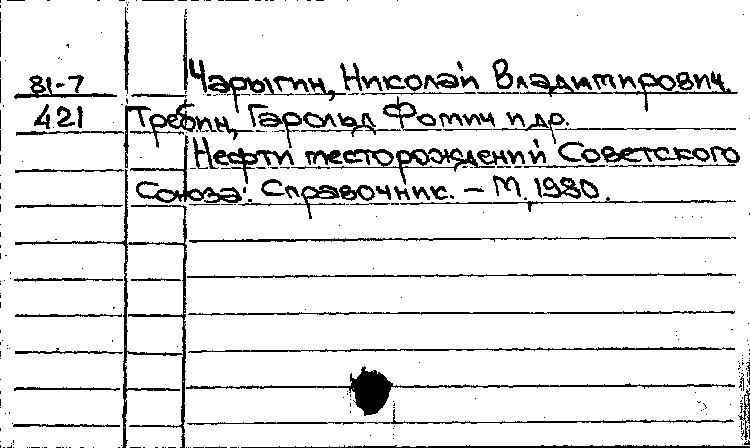 81-7 Чарыгин, Николай Владимирович.
421 Требин, Гарольд Фомич и др.
Нефти месторождений Советского
Союза: Справочник. – М., 1980.